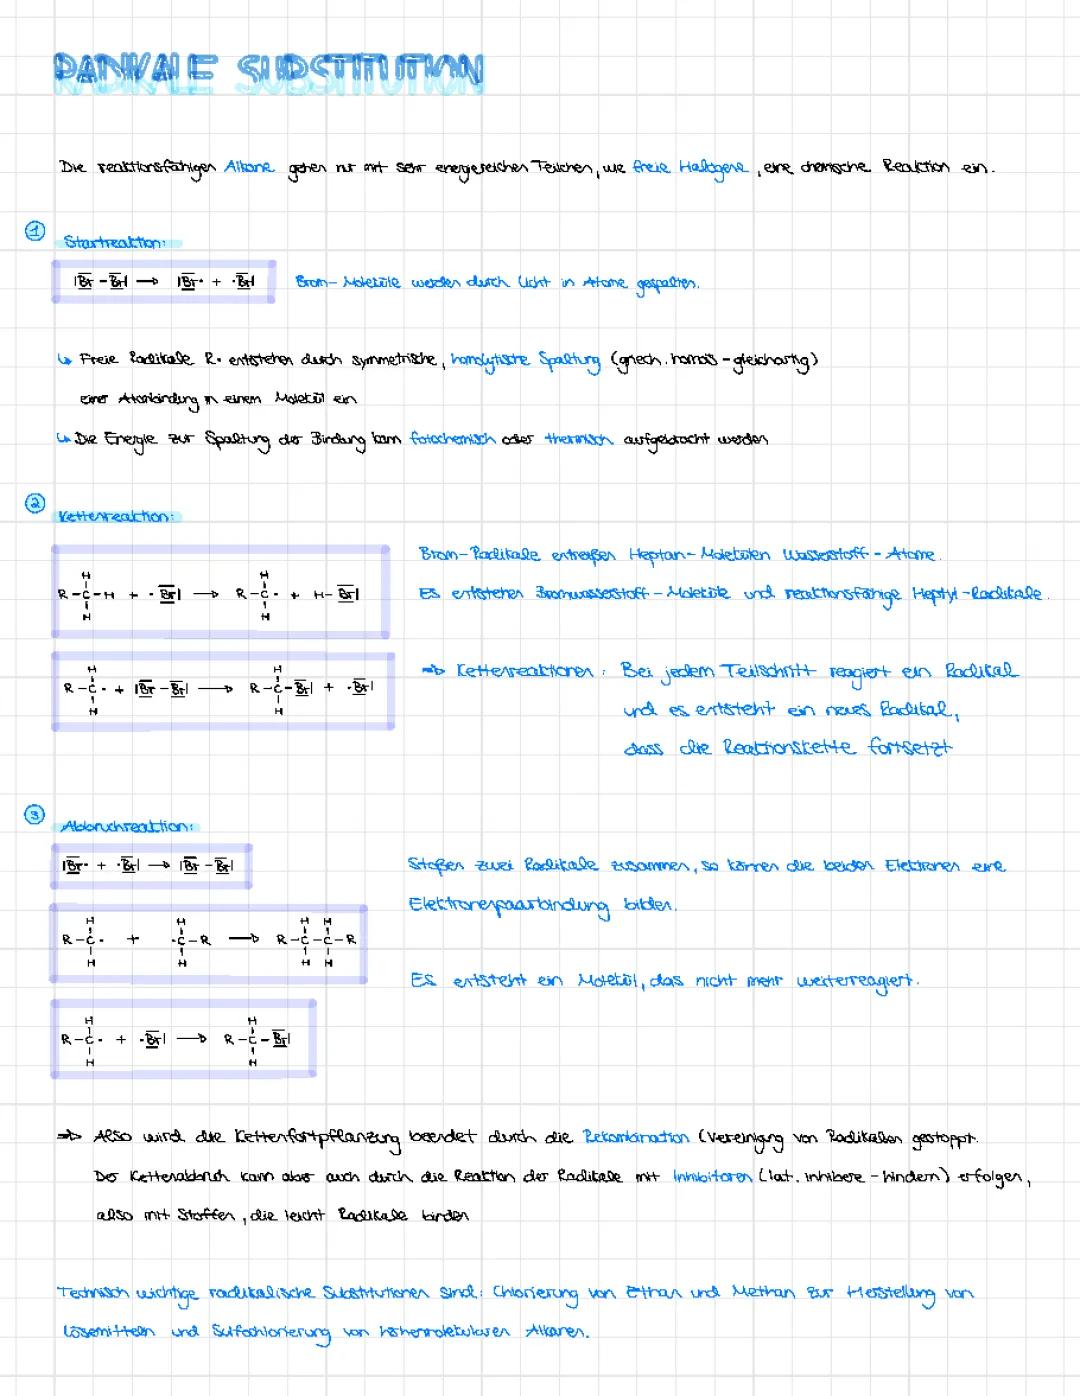 RADIKALE SUBSTITUTION
Die reaktionsfähigen Alkane gehen nur mit sehr energiereichen Teilchen, wie freie Halogene, eine chemische Reaktion ein.
1 Startreaktion:
|Br - Br| → |Br· + ·Br| Brom-Moleküle werden durch Licht in Atome gespalten.
↳ Freie Radikale R· entstehen durch symmetrische, homolytische Spaltung (griech. homois - gleichartig)
einer Atombindung in einem Molekül ein
↳ Die Energie zur Spaltung der Bindung kann fotochemisch oder thermisch aufgebracht werden
2 Kettenreaktion:
Brom-Radikale entreißen Heptan-Molekülen Wasserstoff-Atome.
H H
R-C-H + ·Br| → R-C· + H-Br| Es entstehen Bromwasserstoff-Moleküle und reaktionsfähige Heptyl-Radikale.
H H
H H
⇒ Kettenreaktionen: Bei jedem Teilschritt reagiert ein Radikal
R-C· + |Br-Br| → R-C-Br| + ·Br|
H H
und es entsteht ein neues Radikal,
dass die Reaktionskette fortsetzt
3 Abbruchreaktion:
|Br· + ·Br| → |Br-Br| Stoßen zwei Radikale zusammen, so können die beiden Elektronen eine
Elektronenpaarbindung bilden.
H H H H
R-C· + ·C-R → R-C-C-R
H H H H
Es entsteht ein Molekül, das nicht mehr weiterreagiert.
H H
R-C· + ·Br| → R-C-Br|
H H
⇒ Also wird die Kettenfortpflanzung beendet durch die Rekombination (Vereinigung von Radikalen gestoppt.
Der Kettenabbruch kann aber auch durch die Reaktion der Radikale mit Inhibitoren (lat. inhibere - hindern) erfolgen,
also mit Stoffen, die leicht Radikale binden
Technisch wichtige radikalische Substitutionen sind: Chlorierung von Ethan und Methan zur Herstellung von
Lösemitteln und Sulfochlorierung von höhermolekularen Alkanen.